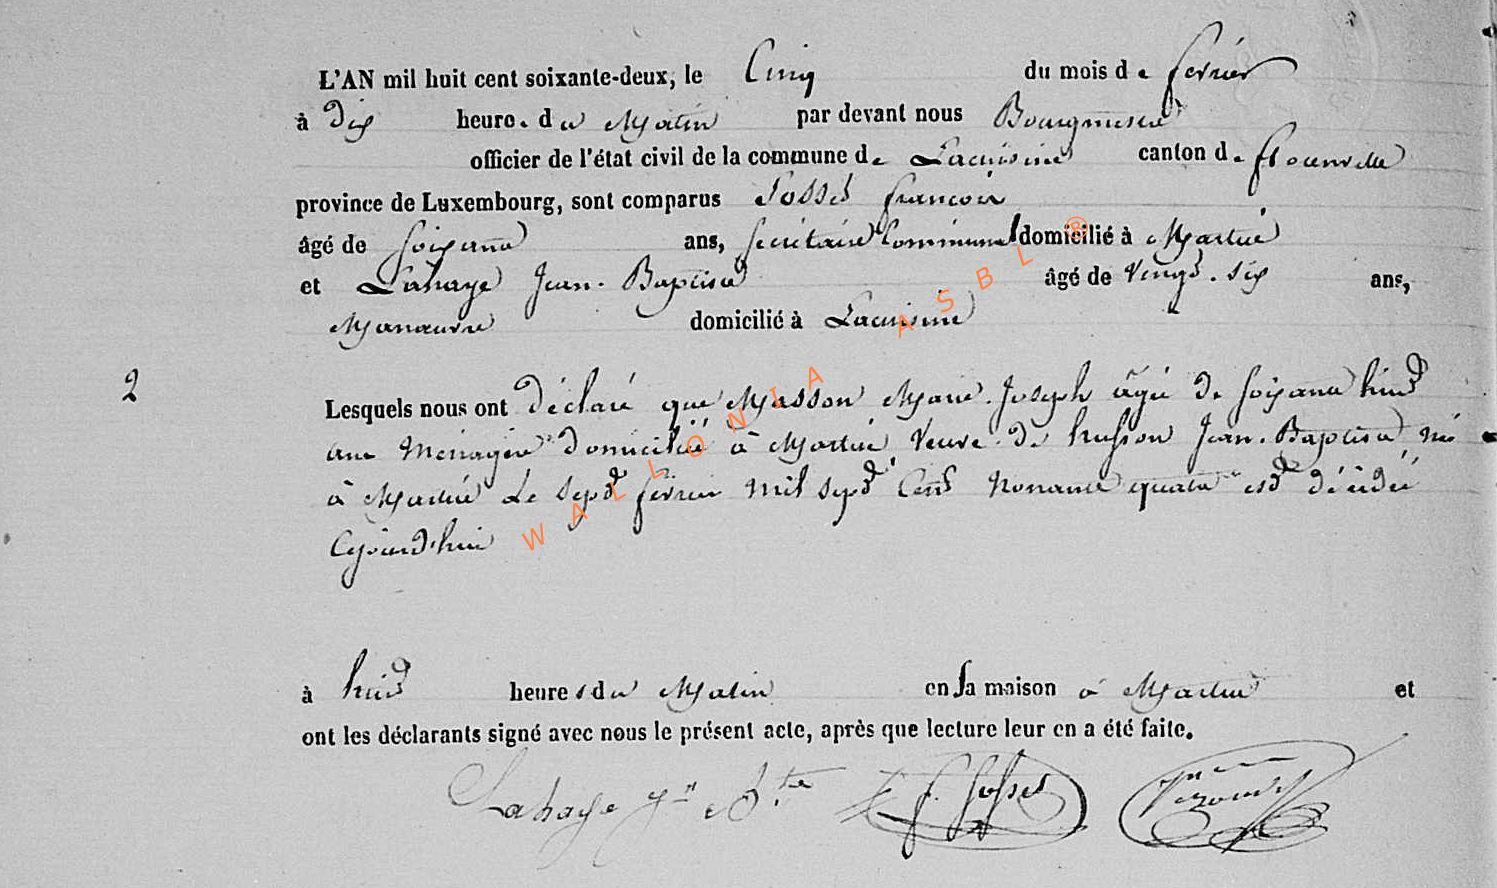 L'AN mil huit cent soixante-deux, le Cinq du mois de février
à dix heure. du Matin par devant nous Bourgmestre
officier de l'état civil de la commune de Lacuisine canton de florenville
province de Luxembourg, sont comparus Fosset francois
âgé de soixante ans, secrétaire Communal domicilié à Martué
et Lahaye Jean-Baptiste âgé de Vingt-six ans,
Manœuvre domicilié à Lacuisine
2
Lesquels nous ont déclaré que Masson Marie-Joseph âgée de soixante huit
ans Ménagère domiciliée à Martué Veuve de husson Jean-Baptiste née
à Martué le sept février Mil sept Cent Nonante quatre est décédée
cejourd'hui
à huit heures du Matin en sa maison à Martué et
ont les déclarants signé avec nous le présent acte, après que lecture leur en a été faite.
Lahaye Jn Bte
WALLONIA ASBL ®